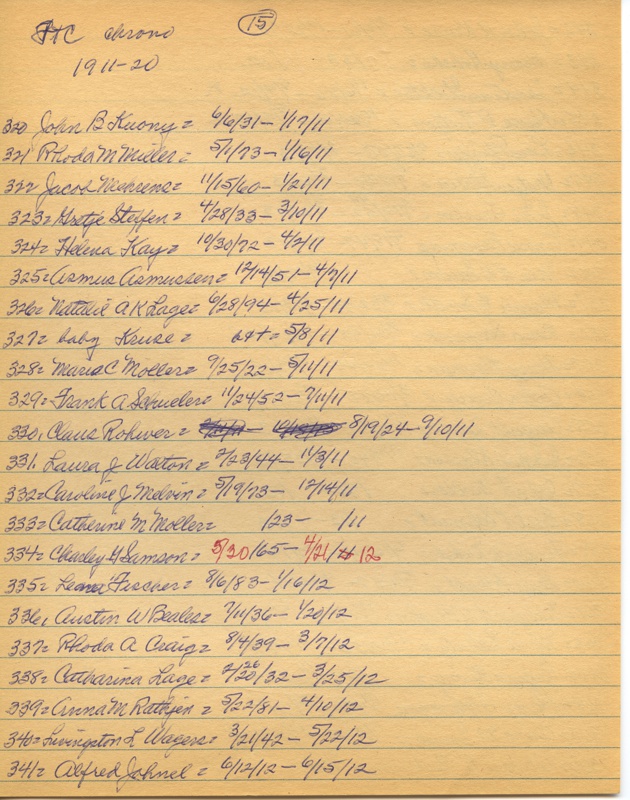 PTC chrono 15
1911-20
320 John B Kuony = 6/6/31 - 1/17/11
321 Rhoda M Miller = 5/1/73 - 1/16/11
322 Jacob Mehrens = 11/15/60 - 1/21/11
323 = Gretje Steffen = 4/28/33 - 3/10/11
324 = Helena Kay = 10/30/72 - 4/2/11
325 = Asmus Asmussen = 12/14/51 - 4/7/11
326 = Natalie A K Lage = 6/28/94 - 4/25/11
327 = baby Kruse = b&+ = 5/8/11
328 = Maria C Moller = 9/25/22 - 5/11/11
329 = Frank A Schueler = 11/24/52 - 7/11/11
330, Claus Rohwer = 8/19/24 - 9/10/11
331, Laura J Watton = 2/23/44 - 11/3/11
332 = Caroline J Melvin = 5/19/73 - 12/14/11
333 = Catherine M Moller = /23 - /11
334 = Charley H Samson = 5/20/65 - 4/21/12
335 = Leana Fischer = 8/6/83 - 1/16/12
336, Austin W Beales = 7/11/36 - 1/20/12
337 = Rhoda A Craig = 8/4/39 - 3/7/12
338 = Catharina Lage = 2/26/32 - 3/25/12
339 = Anna M Rathjen = 5/22/81 - 4/10/12
340 = Livingston L Wagers = 3/21/42 - 5/22/12
341 = Alfred Johnel = 6/12/12 - 6/15/12